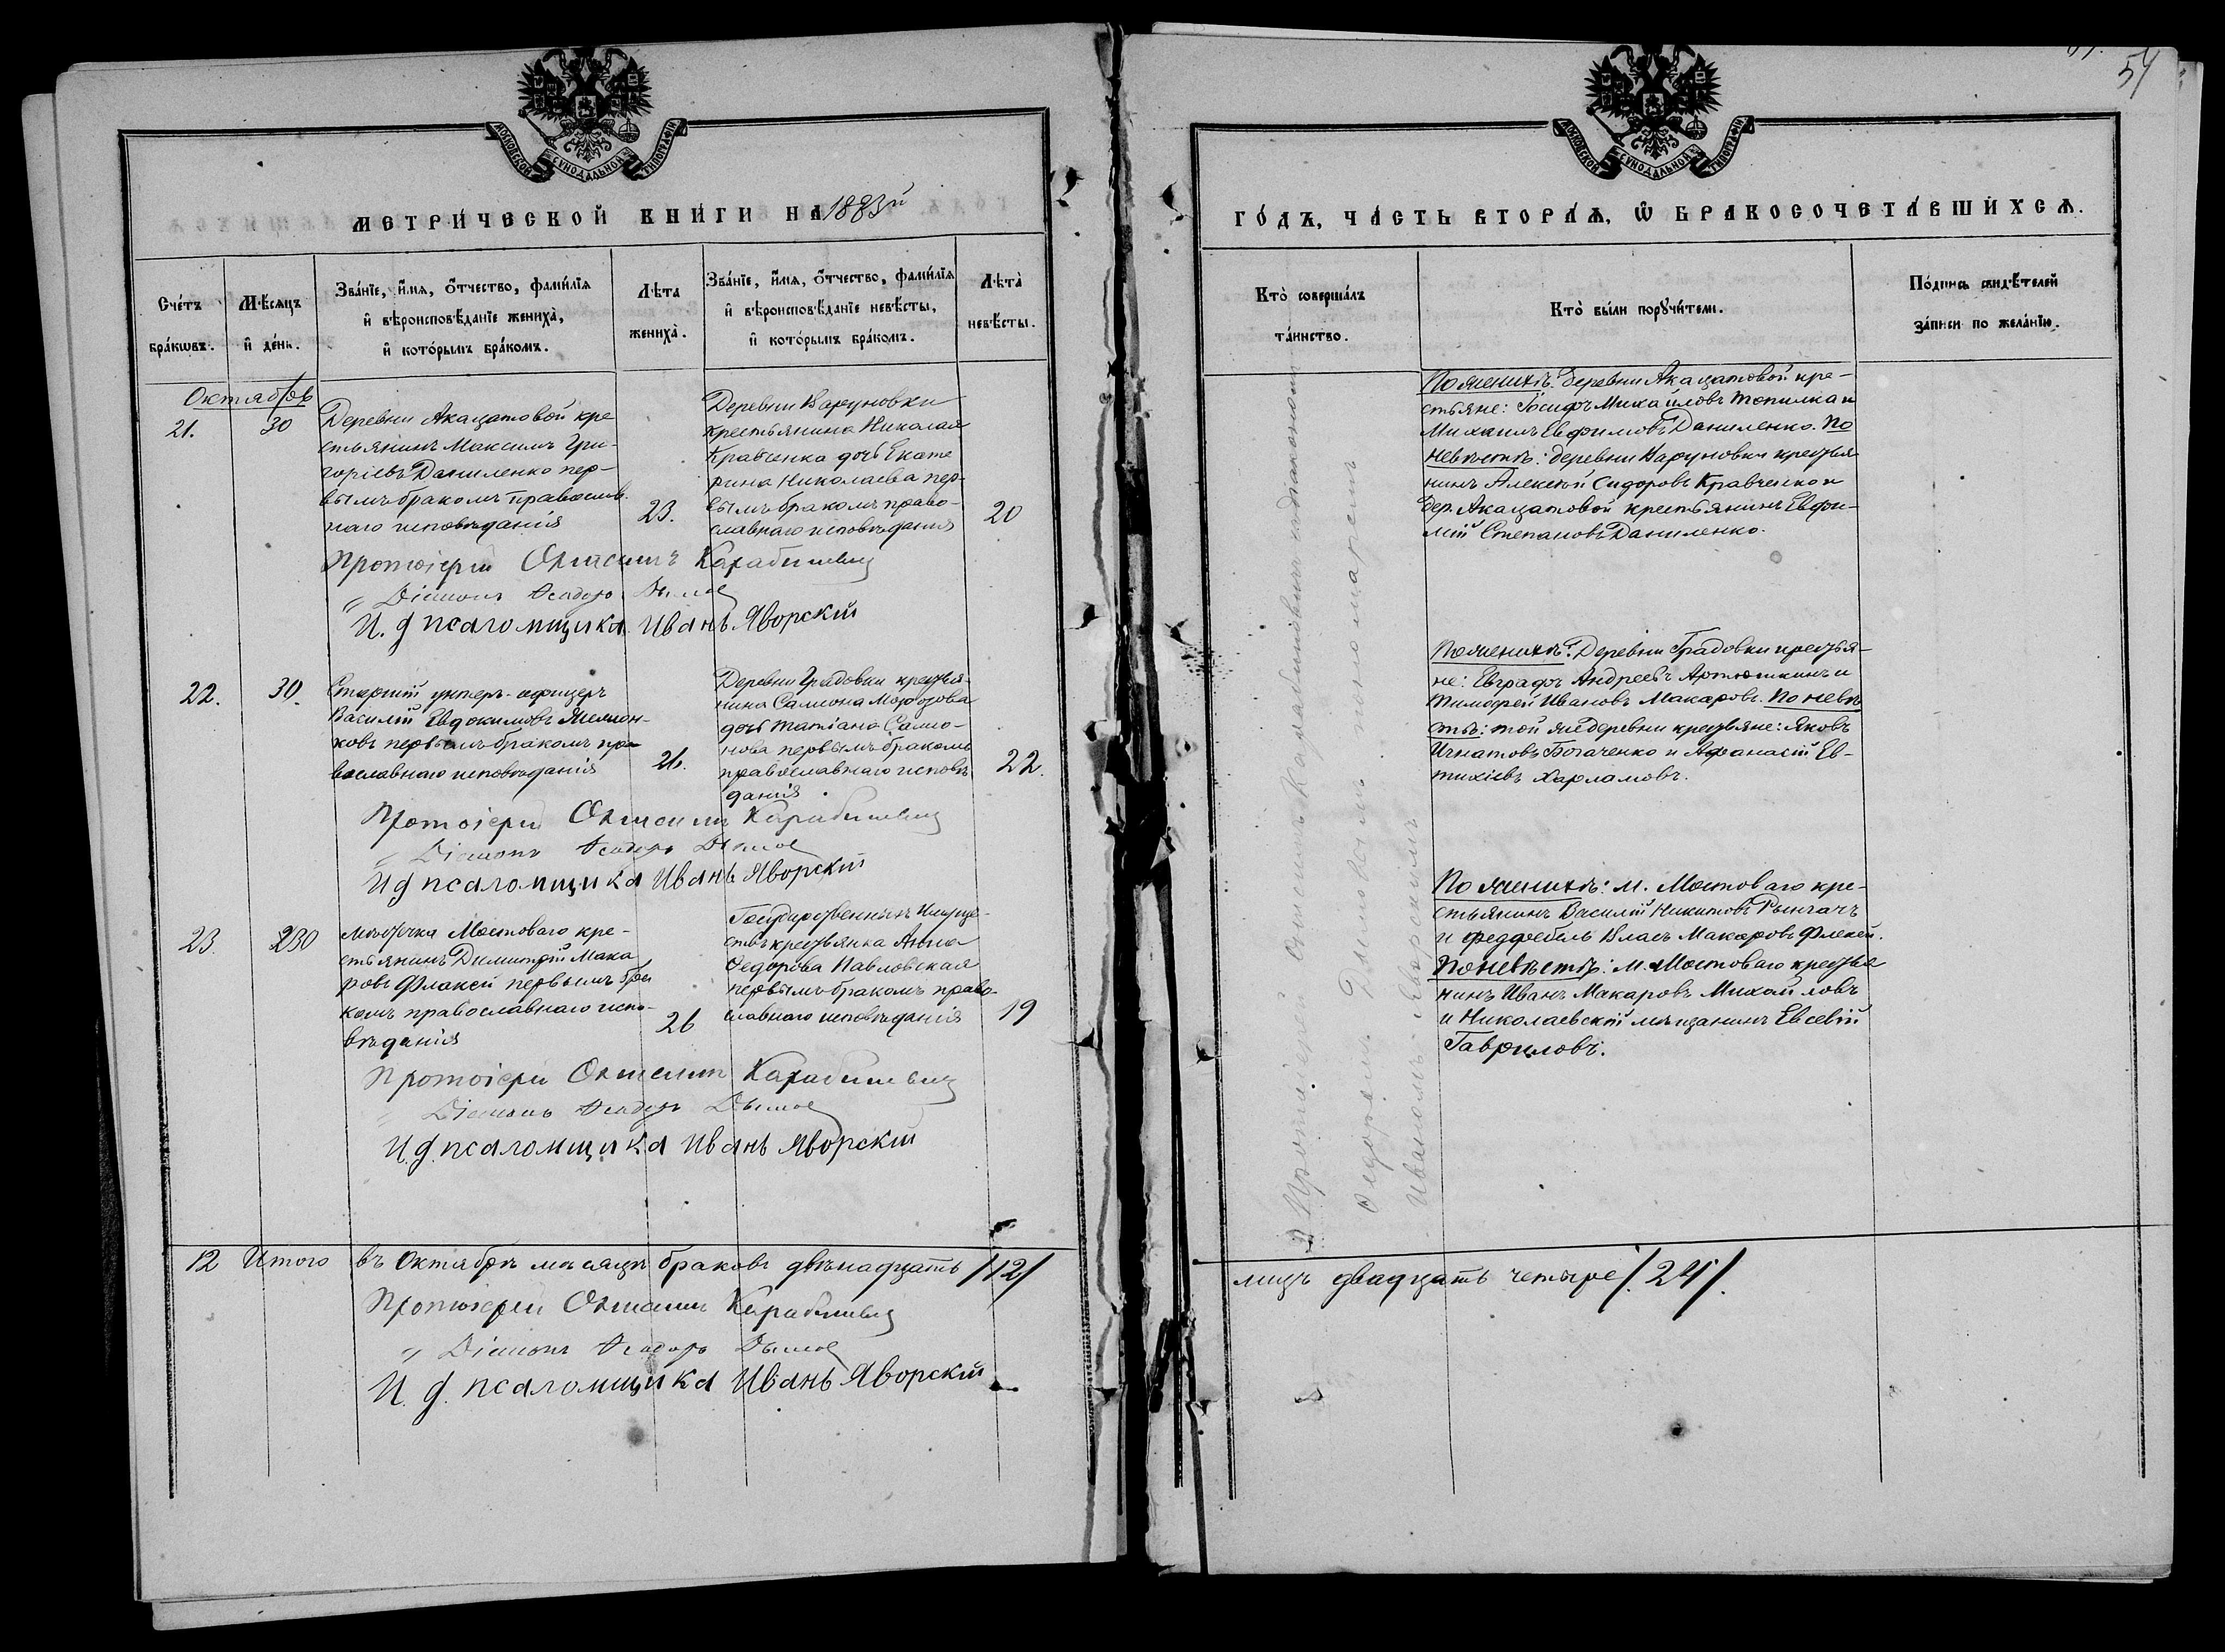 МОСКОВСКОЙ СУНОДАЛЬНОЙ ТИПОГРАФІИ
МЕТРИ́ЧЕСКОЙ КНИ́ГИ НА 1883й
Сче́тъ бра́кѡвъ.
Мѣ́сяцъ и҆ де́нь.
Зва́нїе, и҆́мя, ѻ҆́тчество, фами́лїя
и҆ вѣроисповѣ́данїе жениха̀,
и҆ кото́рымъ бра́комъ.
Лѣ́та жениха̀.
Зва́нїе, и҆́мя, ѻ҆́тчество, фами́лїя
и҆ вѣроисповѣ́данїе невѣ́сты,
и҆ кото́рымъ бра́комъ.
Лѣта̀ невѣ́сты.
Октябрь
21.
30
Деревни Акацатовой кре
стьянинъ Максимъ Гри-
горіевъ Даниленко пер-
вымъ бракомъ православ
наго исповѣданія
23.
Деревни Варуновки
крестьянина Николая
Кравченка дочь Екате
рина Николаева пер-
вымъ бракомъ право-
славнаго исповѣданія
20
Протоіерей Карабиневиц
" Діаконъ Ѳеодоръ Дымов
И. д псаломщика Иванъ Яворскій
22.
30.
Старшій унтеръ-офицеръ
Василій Евдокимовъ Ямщон-
ковъ первымъ бракомъ пра
вославнаго исповѣданія
26.
Деревни Градовки крестья-
нина Самсона Морозова
дочь Татіана Самсо-
нова первымъ бракомъ
православнаго исповѣ
данія
22.
Протоіерей Карабиневиц
" Діаконъ Ѳеодоръ Дымов
И д псаломщика Иванъ Яворскій
23.
30
Мѣстечка Мостоваго кре-
стьянинъ Димитрій Мака
ровъ Флакей первымъ бра
комъ православнаго испо-
вѣданія
26
Государственныхъ Имуще-
ствъ крестьянка Анна
Ѳедорова Павловская
первымъ бракомъ право-
славнаго исповѣданія
19
Протоіерей Карабиневиц
" Діаконъ Ѳеодоръ Дымов
И. д. псаломщика Иванъ Яворскій
12 Итого въ Октябрѣ мѣсяцѣ браковъ двѣнадцать /12/
Протоіерей Карабиневиц
" Діаконъ Ѳеодоръ Дымов
И. д. псаломщика Иванъ Яворскій
54
МОСКОВСКОЙ СУНОДАЛЬНОЙ ТИПОГРАФІИ
ГО́ДЪ, ЧА́СТЬ ВТОРА́Ѧ, Ѽ БРАКОСОЧЕТА́ВШИХСѦ.
Кто̀ соверша́лъ та́инство.
Кто̀ бы́ли порꙋчи́тели.
По́дпись свидѣ́телей за́писи по жела́нїю.
Протоіерей Карабиневичъ съ діакономъ
Ѳедоромъ Дымовымъ и пономаремъ
Иваномъ Яворскимъ
По женихѣ: деревни Акацатовой кре-
стьяне: Іосифъ Михаиловъ Топилка и
Михаилъ Евфимовъ Даниленко. По
невѣстѣ: деревни Варуновки крестья
нинъ Алексѣй Сидоровъ Кравченко и
дер. Акацатовой крестьянинъ Евфи-
мій Степановъ Даниленко.
По женихѣ: Деревни Градовки крестья-
не: Евграфъ Андреевъ Артюшкинъ и
Тимофей Ивановъ Макаровъ. По невѣ
стѣ: той же деревни крестьяне: Яковъ
Игнатовъ Богаченко и Афанасій Ев-
тихіевъ Харламовъ.
По женихѣ: м. Мостоваго кре-
стьянинъ Василій Никитовъ Рынгачъ
и фелдфебель Власъ Макаровъ Флакей.
По невѣстѣ: м. Мостоваго крестья
нинъ Иванъ Макаровъ Михайловъ
и Николаевскій мѣщанинъ Евсевій
Гавриловъ.
лицъ двадцать четыре /.24/.